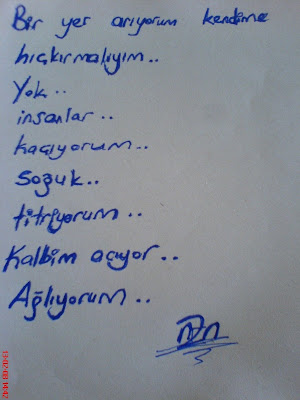 Bir yer arıyorum kendime
hıçkırmalıyım..
Yok..
insanlar..
kaçıyorum..
soğuk..
titriyorum..
Kalbim acıyor..
Ağlıyorum..